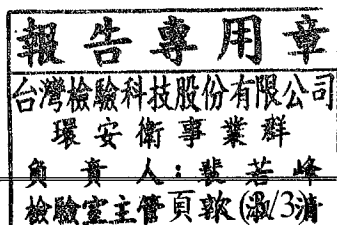 報告專用章
台灣檢驗科技股份有限公司
環安衛事業群
負責人：裴若峰
檢驗室主管頁數(/3)